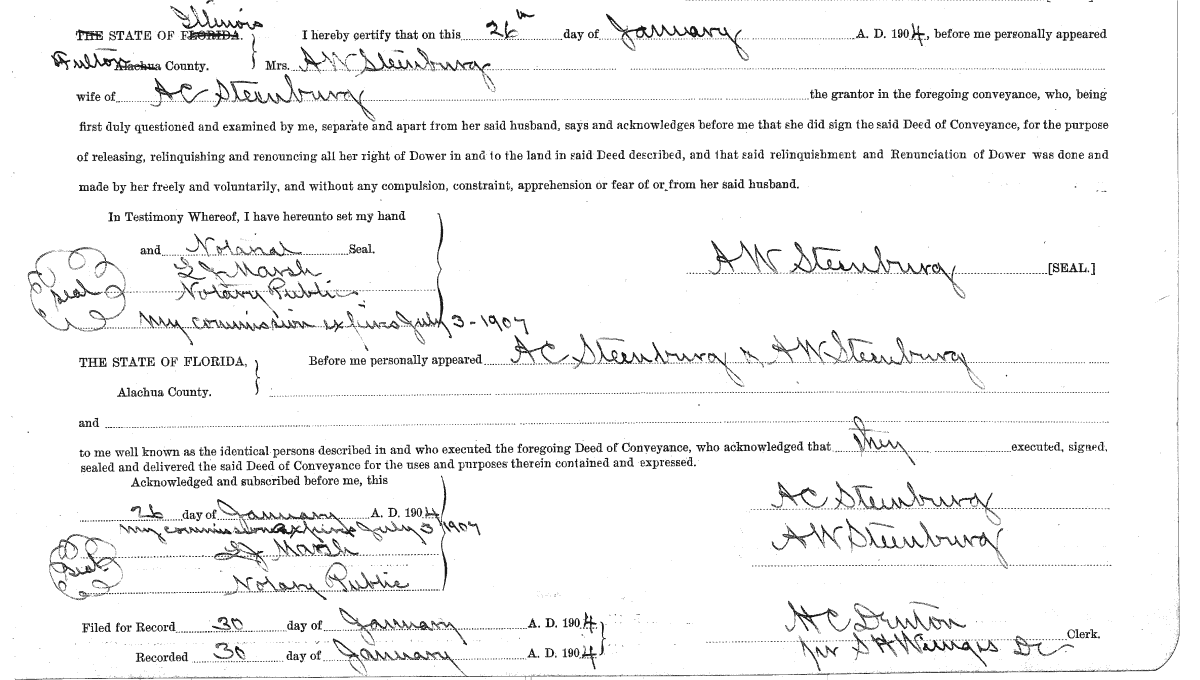 Illinois
THE STATE OF FLORIDA. I hereby certify that on this 26th day of January A. D. 1904, before me personally appeared
Fulton Alachua County. Mrs. A W Steenburg
wife of A C Steenburg the grantor in the foregoing conveyance, who, being
first duly questioned and examined by me, separate and apart from her said husband, says and acknowledges before me that she did sign the said Deed of Conveyance, for the purpose
of releasing, relinquishing and renouncing all her right of Dower in and to the land in said Deed described, and that said relinquishment and Renunciation of Dower was done and
made by her freely and voluntarily, and without any compulsion, constraint, apprehension or fear of or from her said husband.
In Testimony Whereof, I have hereunto set my hand
and Notarial Seal.
A W Steenburg [SEAL.]
L J Marsh
Seal Notary Public
My commission expires July 3 - 1907
THE STATE OF FLORIDA, Before me personally appeared A C Steenburg & A W Steenburg
Alachua County.
and
to me well known as the identical persons described in and who executed the foregoing Deed of Conveyance, who acknowledged that they executed, signed,
sealed and delivered the said Deed of Conveyance for the uses and purposes therein contained and expressed.
Acknowledged and subscribed before me, this
26 day of January A. D. 1904
A C Steenburg
My commission expires July 3 1907
L J Marsh
A W Steenburg
Seal
Notary Public
Filed for Record 30 day of January A. D. 1904
H C Denton Clerk.
Recorded 30 day of January A. D. 1904
per S H Wienges DC